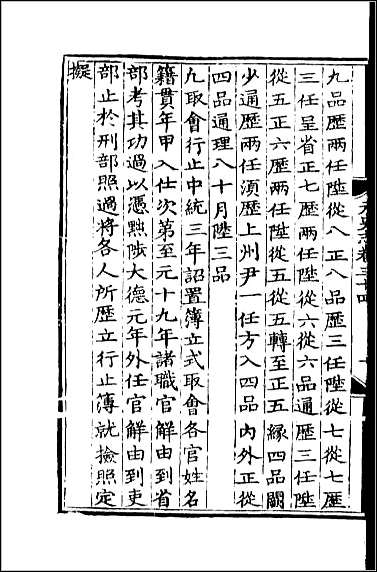 九品歴兩任陞從八正八品歴三任陞從七從七歴
三任呈省正七歴兩任陞從六從六品通歴三任陞
從五正六歴兩任陞從五從五轉至正五縁四品闕
少通歴兩任須歴上州尹一任方入四品内外正從
四品通理八十月陞三品
九取會行止中統三年詔置簿立式取會各官姓名
籍貫年甲入仕次第至元十九年諸職官解由到省
部考其功過以憑黜陟大德元年外任官解由到吏
部止於刑部照過將各人所歴立行止簿就撿照定
擬